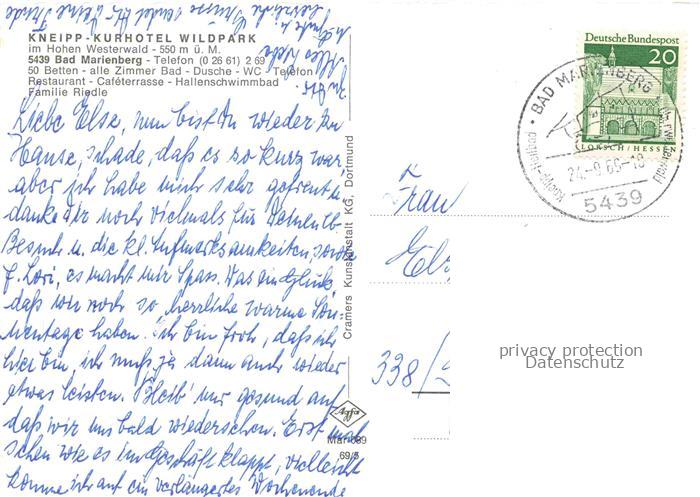 KNEIPP-KURHOTEL WILDPARK
im Hohen Westerwald - 550 m ü. M.
5439 Bad Marienberg - Telefon (0 26 61) 2 69
50 Betten - alle Zimmer Bad - Dusche - WC - Telefon
Restaurant - Caféterrasse - Hallenschwimmbad
Familie Riedle
Liebe Else, nun bist Du wieder zu
Hause, schade, daß es so kurz war
aber ich habe mich sehr gefreut u.
danke Dir noch vielmals für Deinen lb.
Besuch u. die kl. Aufmerksamkeiten, sowie
f. Lori, es macht mir Spass. Was ein Glück,
daß wir noch so herrliche warme Son-
nentage haben. Ich bin froh, daß ich
hier bin, ich muß ja dann auch wieder
etwas leisten. Bleib' nur gesund auf
daß wir uns bald wiedersehen. Erst mal
sehen wie es im Geschäft klappt, vielleicht
komme ich auf ein verlängertes Wochenende
Alles Liebe
herzliche Grüsse
Cramers Kunstanstalt KG, Dortmund
Agfa
69/5
Deutsche Bundespost
20
LORSCH/HESSEN
BAD MARIENBERG
5439
Frau
338/
privacy protection
Datenschutz